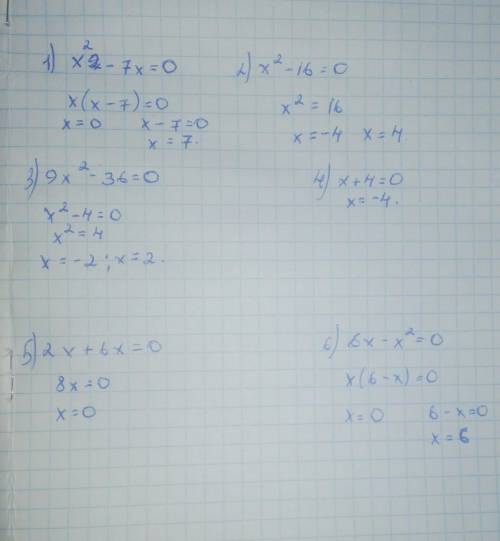 1) x² - 7x = 0
x(x - 7) = 0
x = 0 x - 7 = 0
x = 7.
2) x² - 16 = 0
x² = 16
x = -4 x = 4
3) 9x² - 36 = 0
x² - 4 = 0
x² = 4
x = -2; x = 2.
4) x + 4 = 0
x = -4.
5) 2x + 6x = 0
8x = 0
x = 0
6) 6x - x² = 0
x(6 - x) = 0
x = 0 6 - x = 0
x = 6